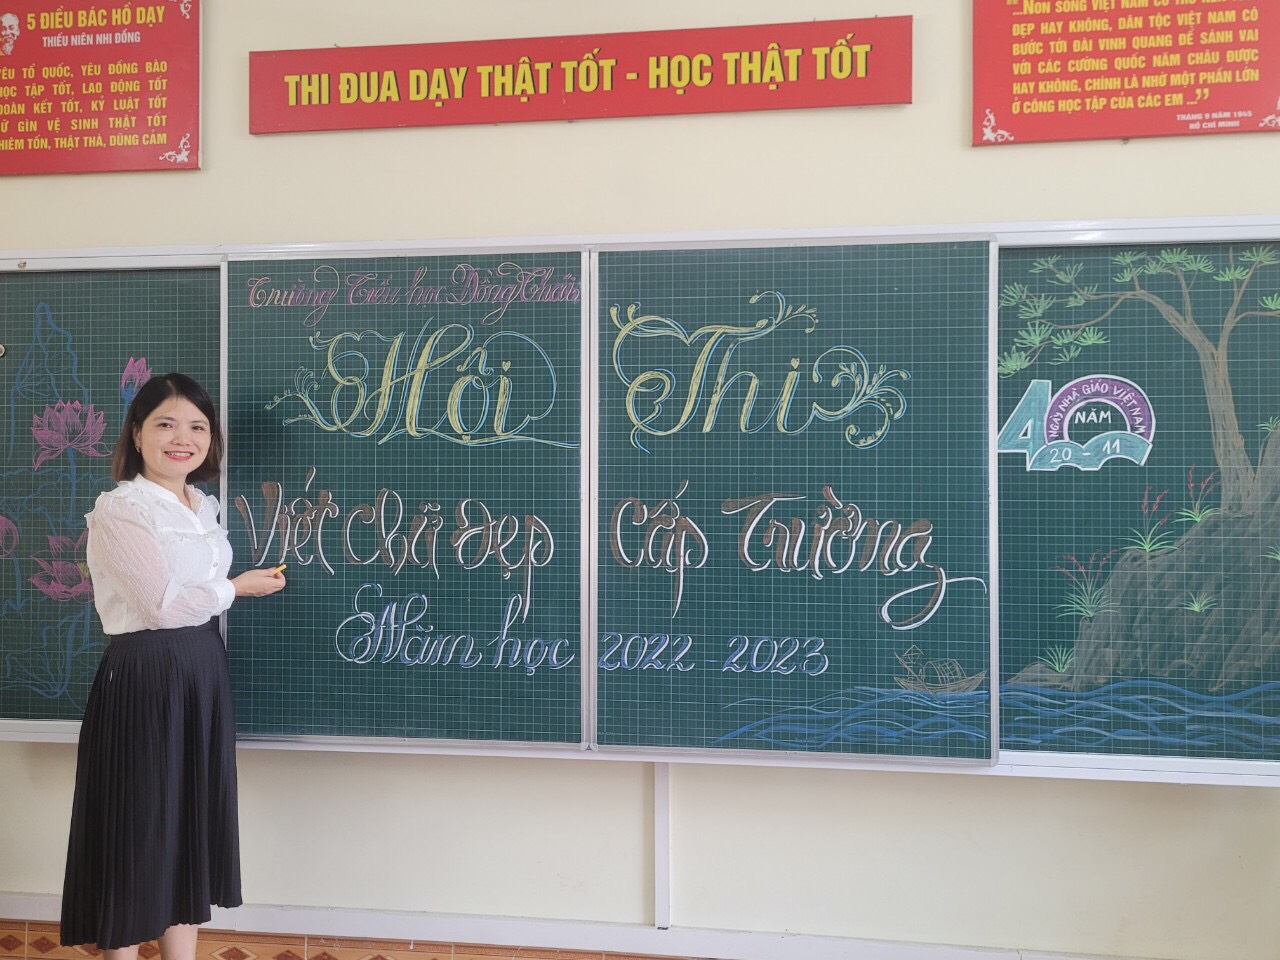 5 ĐIỀU BÁC HỒ DẠY
THIẾU NIÊN NHI ĐỒNG
YÊU TỔ QUỐC, YÊU ĐỒNG BÀO
HỌC TẬP TỐT, LAO ĐỘNG TỐT
ĐOÀN KẾT TỐT, KỶ LUẬT TỐT
GÌN VỆ SINH THẬT TỐT
THẬT THÀ, DŨNG CẢM
THI ĐUA DẠY THẬT TỐT - HỌC THẬT TỐT
"...NON SÔNG VIỆT NAM CÓ
ĐẸP HAY KHÔNG, DÂN TỘC VIỆT NAM CÓ
BƯỚC TỚI ĐÀI VINH QUANG ĐỂ SÁNH VAI
VỚI CÁC CƯỜNG QUỐC NĂM CHÂU ĐƯỢC
HAY KHÔNG, CHÍNH LÀ NHỜ MỘT PHẦN LỚN
Ở CÔNG HỌC TẬP CỦA CÁC EM ..."
THÁNG 9 NĂM 1945
HỒ CHÍ MINH
Trường Tiểu học Đồng Thái
Hội Thi
Viết Chữ Đẹp Cấp Trường
Năm học 2022 - 2023
40 NĂM
NGÀY NHÀ GIÁO VIỆT NAM
20 - 11